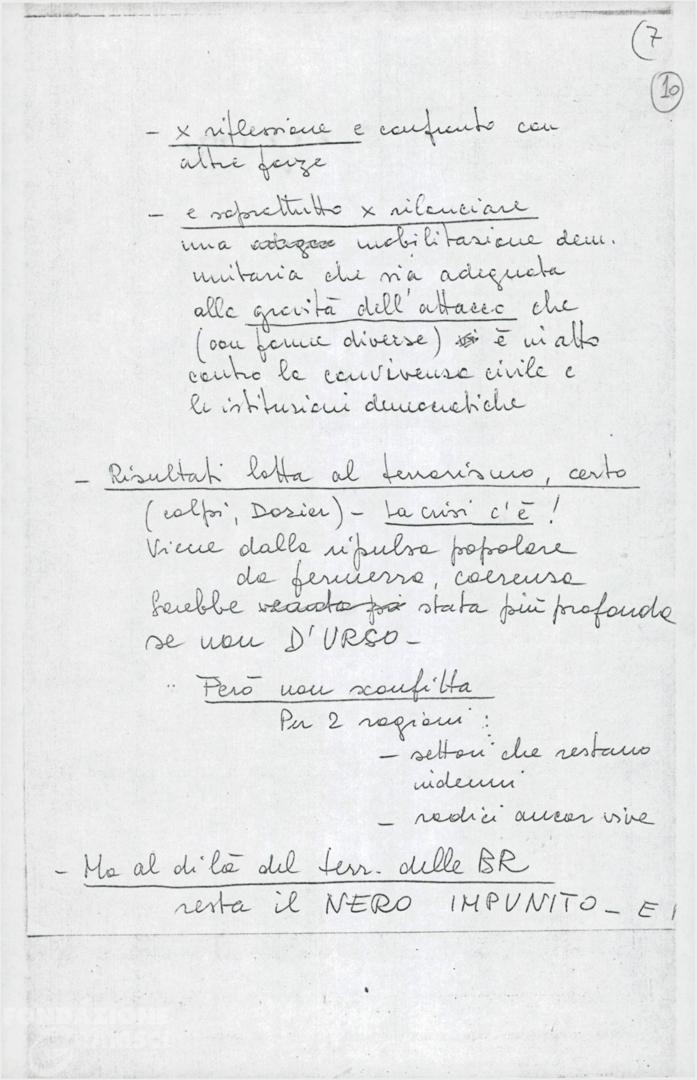 (7
10
- x riflessione e confronto con
altre forze
- e soprattutto x rilanciare
una mobilitazione dem.
unitaria che sia adeguata
alla gravità dell'attacco che
(con forme diverse) è in atto
contro la convivenza civile e
le istituzioni democratiche
- Risultati lotta al terrorismo, certo
(colpi, Dozier) - La crisi c'è!
Viene dalla ripulsa popolare
da fermezza, coerenza
Sarebbe stata più profonda
se non D'URSO -
Però non sconfitta
Per 2 ragioni:
- settori che restano
indenni
- radici ancor vive
- Ma al di là del terr. delle BR
resta il NERO IMPUNITO - E
FONDAZIONE
GRAMSCI